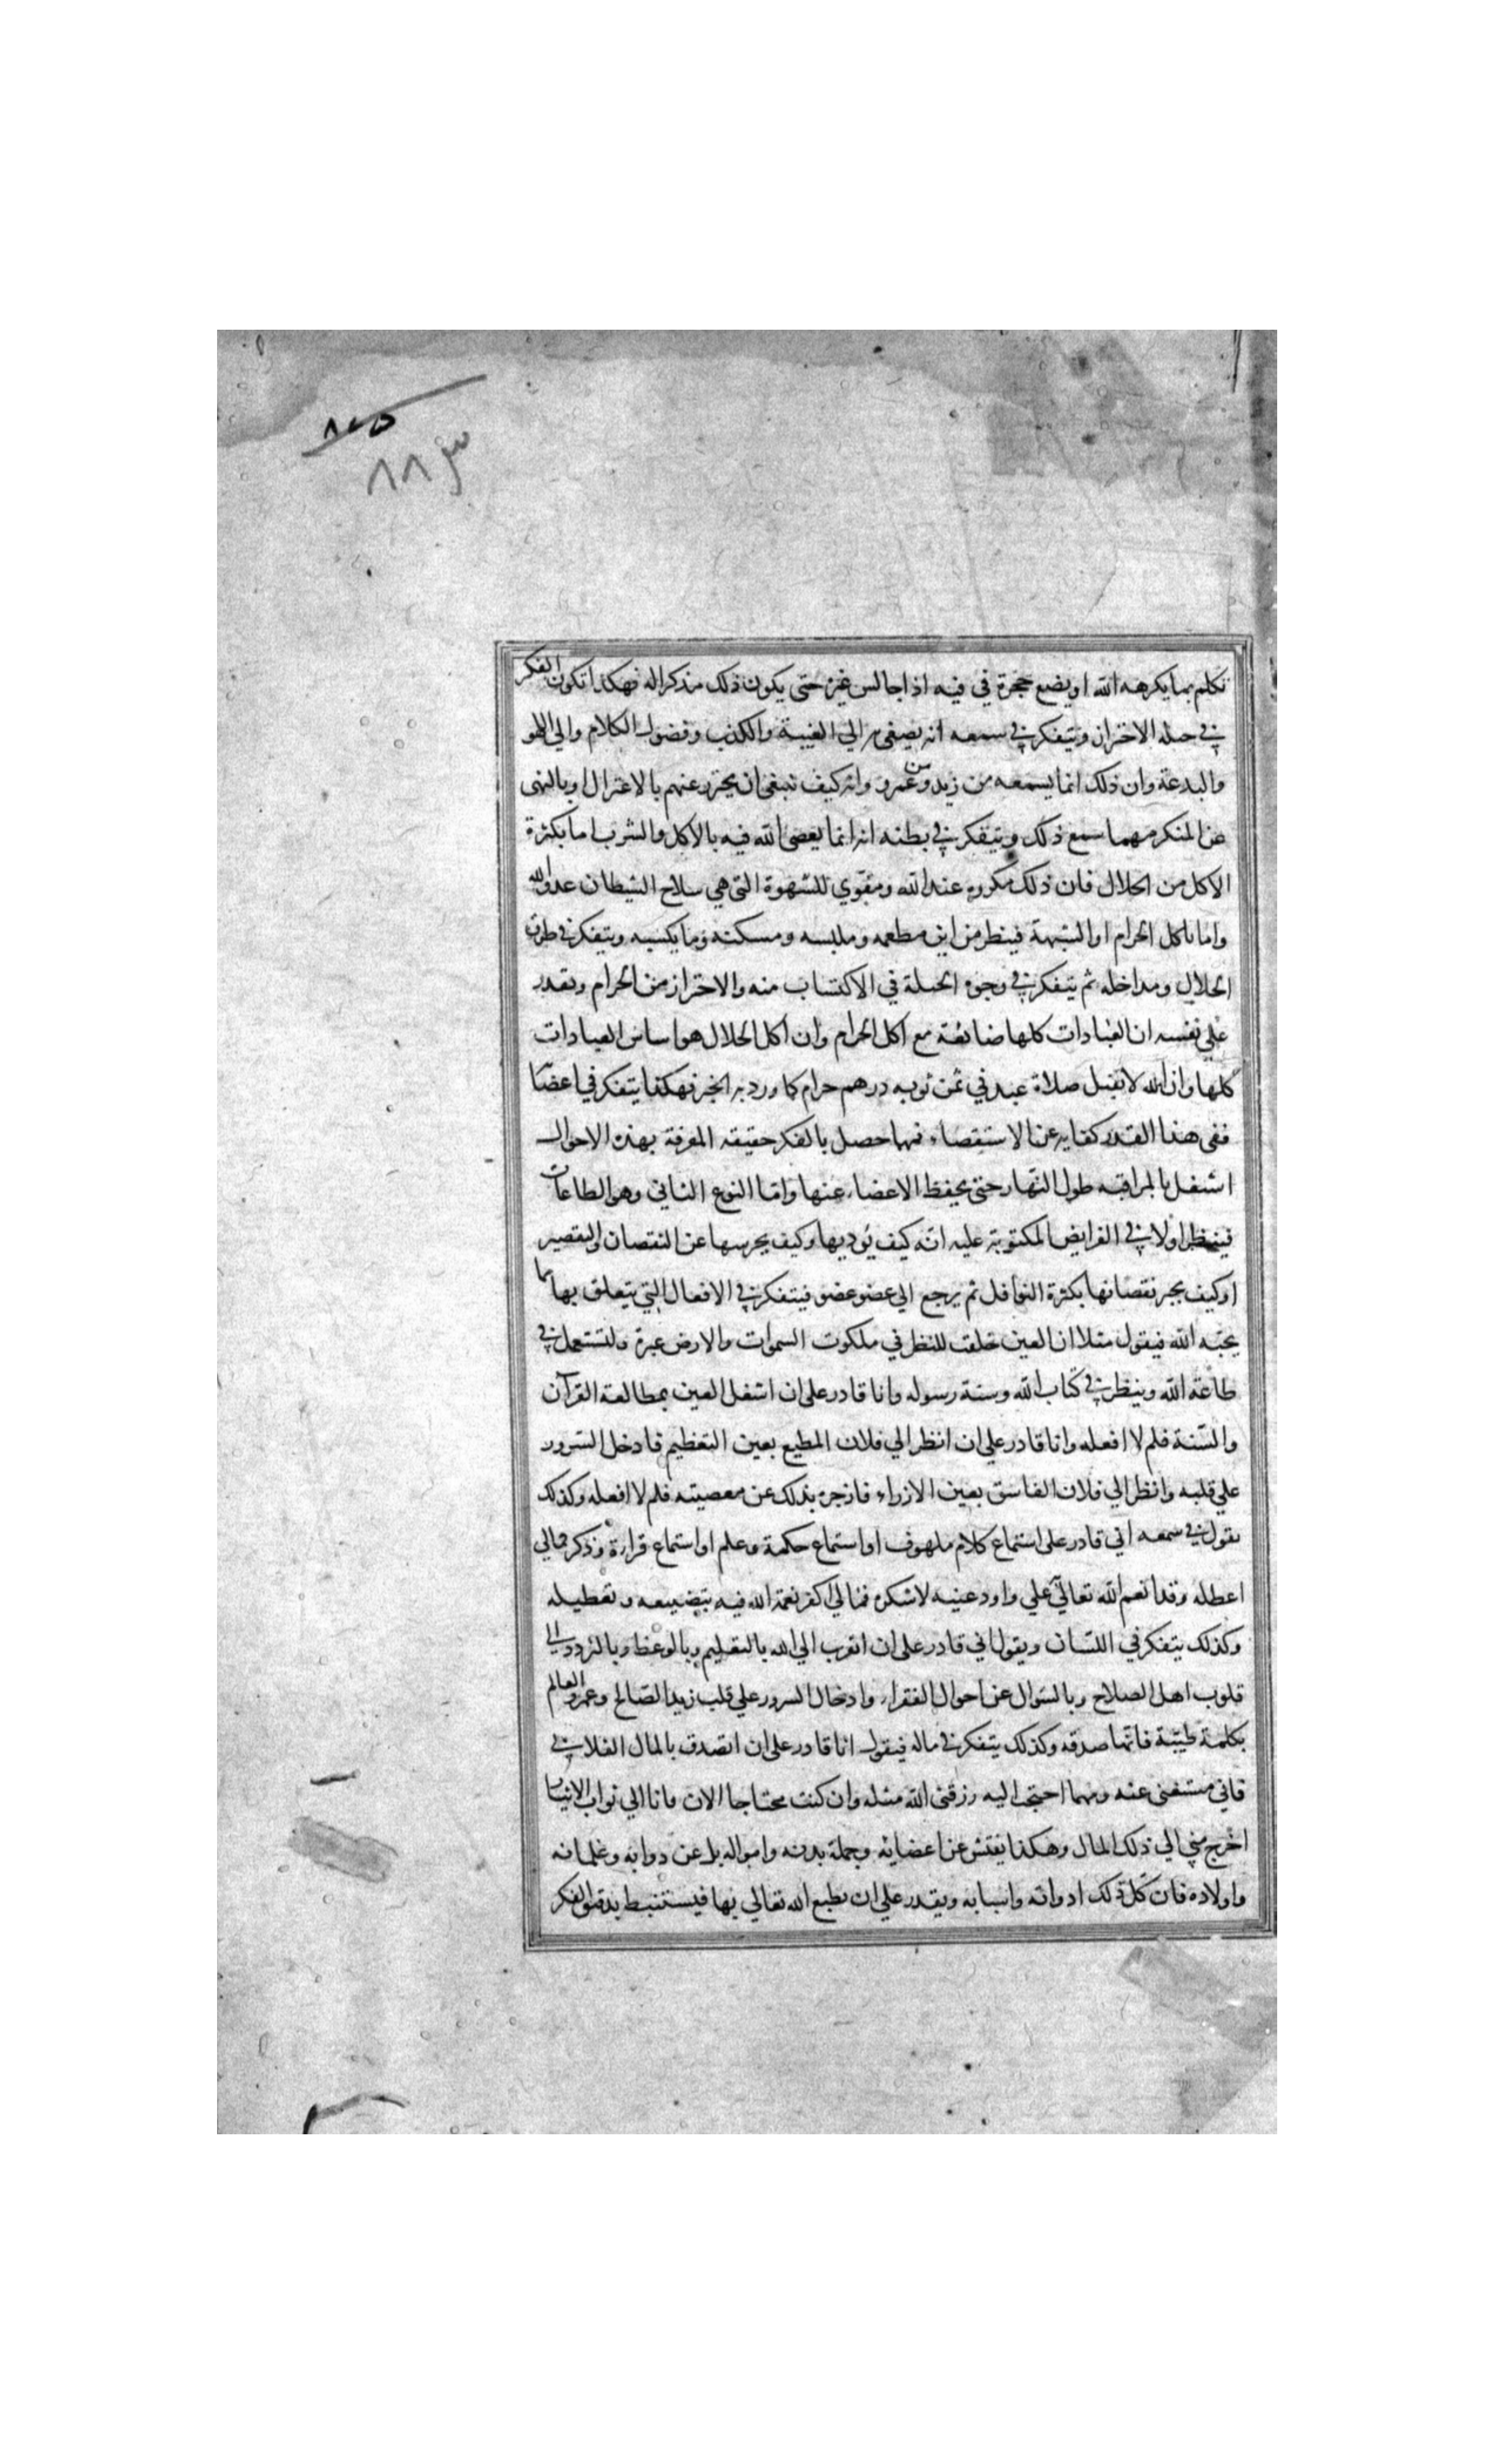 ٨٧٥
٨٨٣
تكلم بما يكرهه الله او يضع حجرة في فيه اذا جالس غيره حتى يكون ذلك مذكرا له فهكذا تكون الفكر
في حيلة الاحتراز ويتفكر في سمعه انه يصغى به الي الغيبة والكذب وفضول الكلام والي اللهو
والبدعة وان ذلك انما يسمعه من زيد ومن عمرو وانه كيف ينبغي ان يحترز عنهم بالاعتزال او بالنهى
عن المنكر مهما سمع ذلك ويتفكر في بطنه انه انما يعصى الله فيه بالاكل والشرب اما بكثرة
الاكل من الحلال فان ذلك مكروه عند الله ومقوي للشهوة التي هي سلاح الشيطان عدو الله
واما باكل الحرام او الشبهة فينظر من اين مطعمه وملبسه ومسكنه وما يكسبه ويتفكر في طريق
الحلال ومداخله ثم يتفكر في وجوه الحيلة في الاكتساب منه والاحتراز من الحرام ويقدر
علي نفسه ان العبادات كلها ضائعة مع اكل الحرام وان اكل الحلال هو اساس العبادات
كلها وان الله لا يقبل صلاة عبد في ثمن ثوبه درهم حرام كما ورد به الخبر فهكذا يتفكر في اعضا
ففي هذا القدر كفايه عن الاستقصاء فمهما حصل بالفكر حقيقة المعرفة بهذه الاحوال
اشتغل بالمراقبه طول النهار حتى يحفظ الاعضاء عنها واما النوع الثاني وهو الطاعات
فينظر اولا في الفرايض المكتوبة عليه انه كيف يؤديها وكيف يحرسها عن النقصان والتقصير
او كيف يجبر نقصانها بكثرة النوافل ثم يرجع الي عضو عضو فيتفكر في الافعال التي يتعلق بها مما
يحبه الله فيقول مثلا ان العين خلقت للنظر في ملكوت السموات والارض عبرة ولتستعمل في
طاعة الله وينظر في كتاب الله وسنة رسوله وانا قادر على ان اشغل العين بمطالعة القرآن
والسنة فلم لا افعله وانا قادر على ان انظر الي فلان المطيع بعين التعظيم فادخل السرور
علي قلبه وانظر الي فلان الفاسق بعين الازراء فازجره بذلك عن معصيته فلم لا افعله وكذلك
يقول في سمعه اني قادر على استماع كلام ملهوف او استماع حكمة وعلم او استماع قراءة وذكر فمالي
اعطله وقد انعم الله تعالى علي واودعنيه لاشكره فمالي اكفر نعمة الله فيه بتضييعه وتعطيله
وكذلك يتفكر في اللسان ويقول اني قادر على ان اتقرب الي الله بالتعليم وبالوعظ وبالتردد الي
قلوب اهل الصلاح وبالسؤال عن احوال الفقراء وادخال السرور علي قلب زيد الصالح وعمرو العالم
بكلمة طيبة فانها صدقه وكذلك يتفكر في ماله فيقول انا قادر على ان اتصدق بالمال الفلاني
فاني مستغنى عنه ومهما احتجت اليه رزقنى الله مثله وان كنت محتاجا الان فانا الي ثواب الايثار
احوج مني الي ذلك المال وهكذا يفتش عن اعضائه وجملة بدنه وامواله بل عن دوابه وغلمانه
واولاده فان كل ذلك ادواته واسبابه ويقدر علي ان يطيع الله تعالي بها فيستنبط بدقيق الفكر